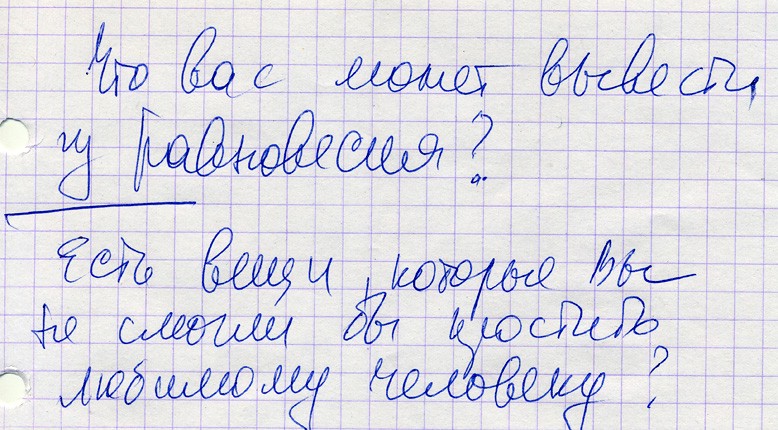 Что вас может вывести
из равновесия?
Есть вещи, которые вы
не смогли бы простить
любимому человеку?